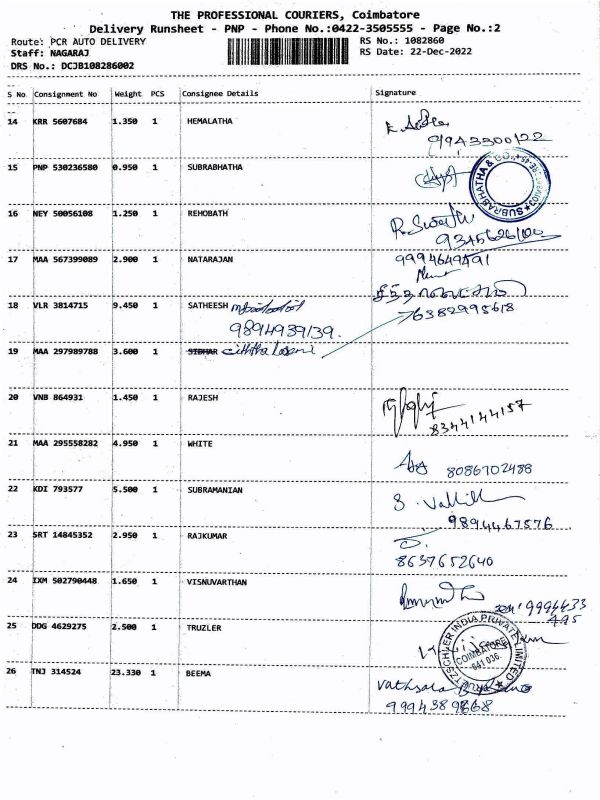 THE PROFESSIONAL COURIERS, Coimbatore
Delivery Runsheet - PNP - Phone No.:0422-3505555 - Page No.:2
Route: PCR AUTO DELIVERY
RS No.: 1082860
Staff: NAGARAJ
RS Date: 22-Dec-2022
DRS No.: DCJB108286002
S No Consignment No Weight PCS Consignee Details Signature
14 KRR 5607684 1.350 1 HEMALATHA
9943300122
15 PNP 530236580 0.950 1 SUBRABHATHA
SUBRABHATHA & CO.
16 NEY 50056108 1.250 1 REHOBATH
9345626100
17 MAA 567399089 2.900 1 NATARAJAN
9994649491
18 VLR 3814715 9.450 1 SATHEESH
76382995618
9894939139.
19 MAA 297989788 3.600 1 SIDHAR
20 VNB 864931 1.450 1 RAJESH
8344144157
21 MAA 295558282 4.950 1 WHITE
8086702488
22 KDI 793577 5.500 1 SUBRAMANIAN
9894467576
23 SRT 14845352 2.950 1 RAJKUMAR
8637652640
24 IXM 502790448 1.650 1 VISNUVARTHAN
9994433
495
25 DDG 4629275 2.500 1 TRUZLER
TRUETZSCHLER INDIA PRIVATE LIMITED
COIMBATORE
641 036.
26 TNJ 314524 23.330 1 BEEMA
Vathsala
9994389868